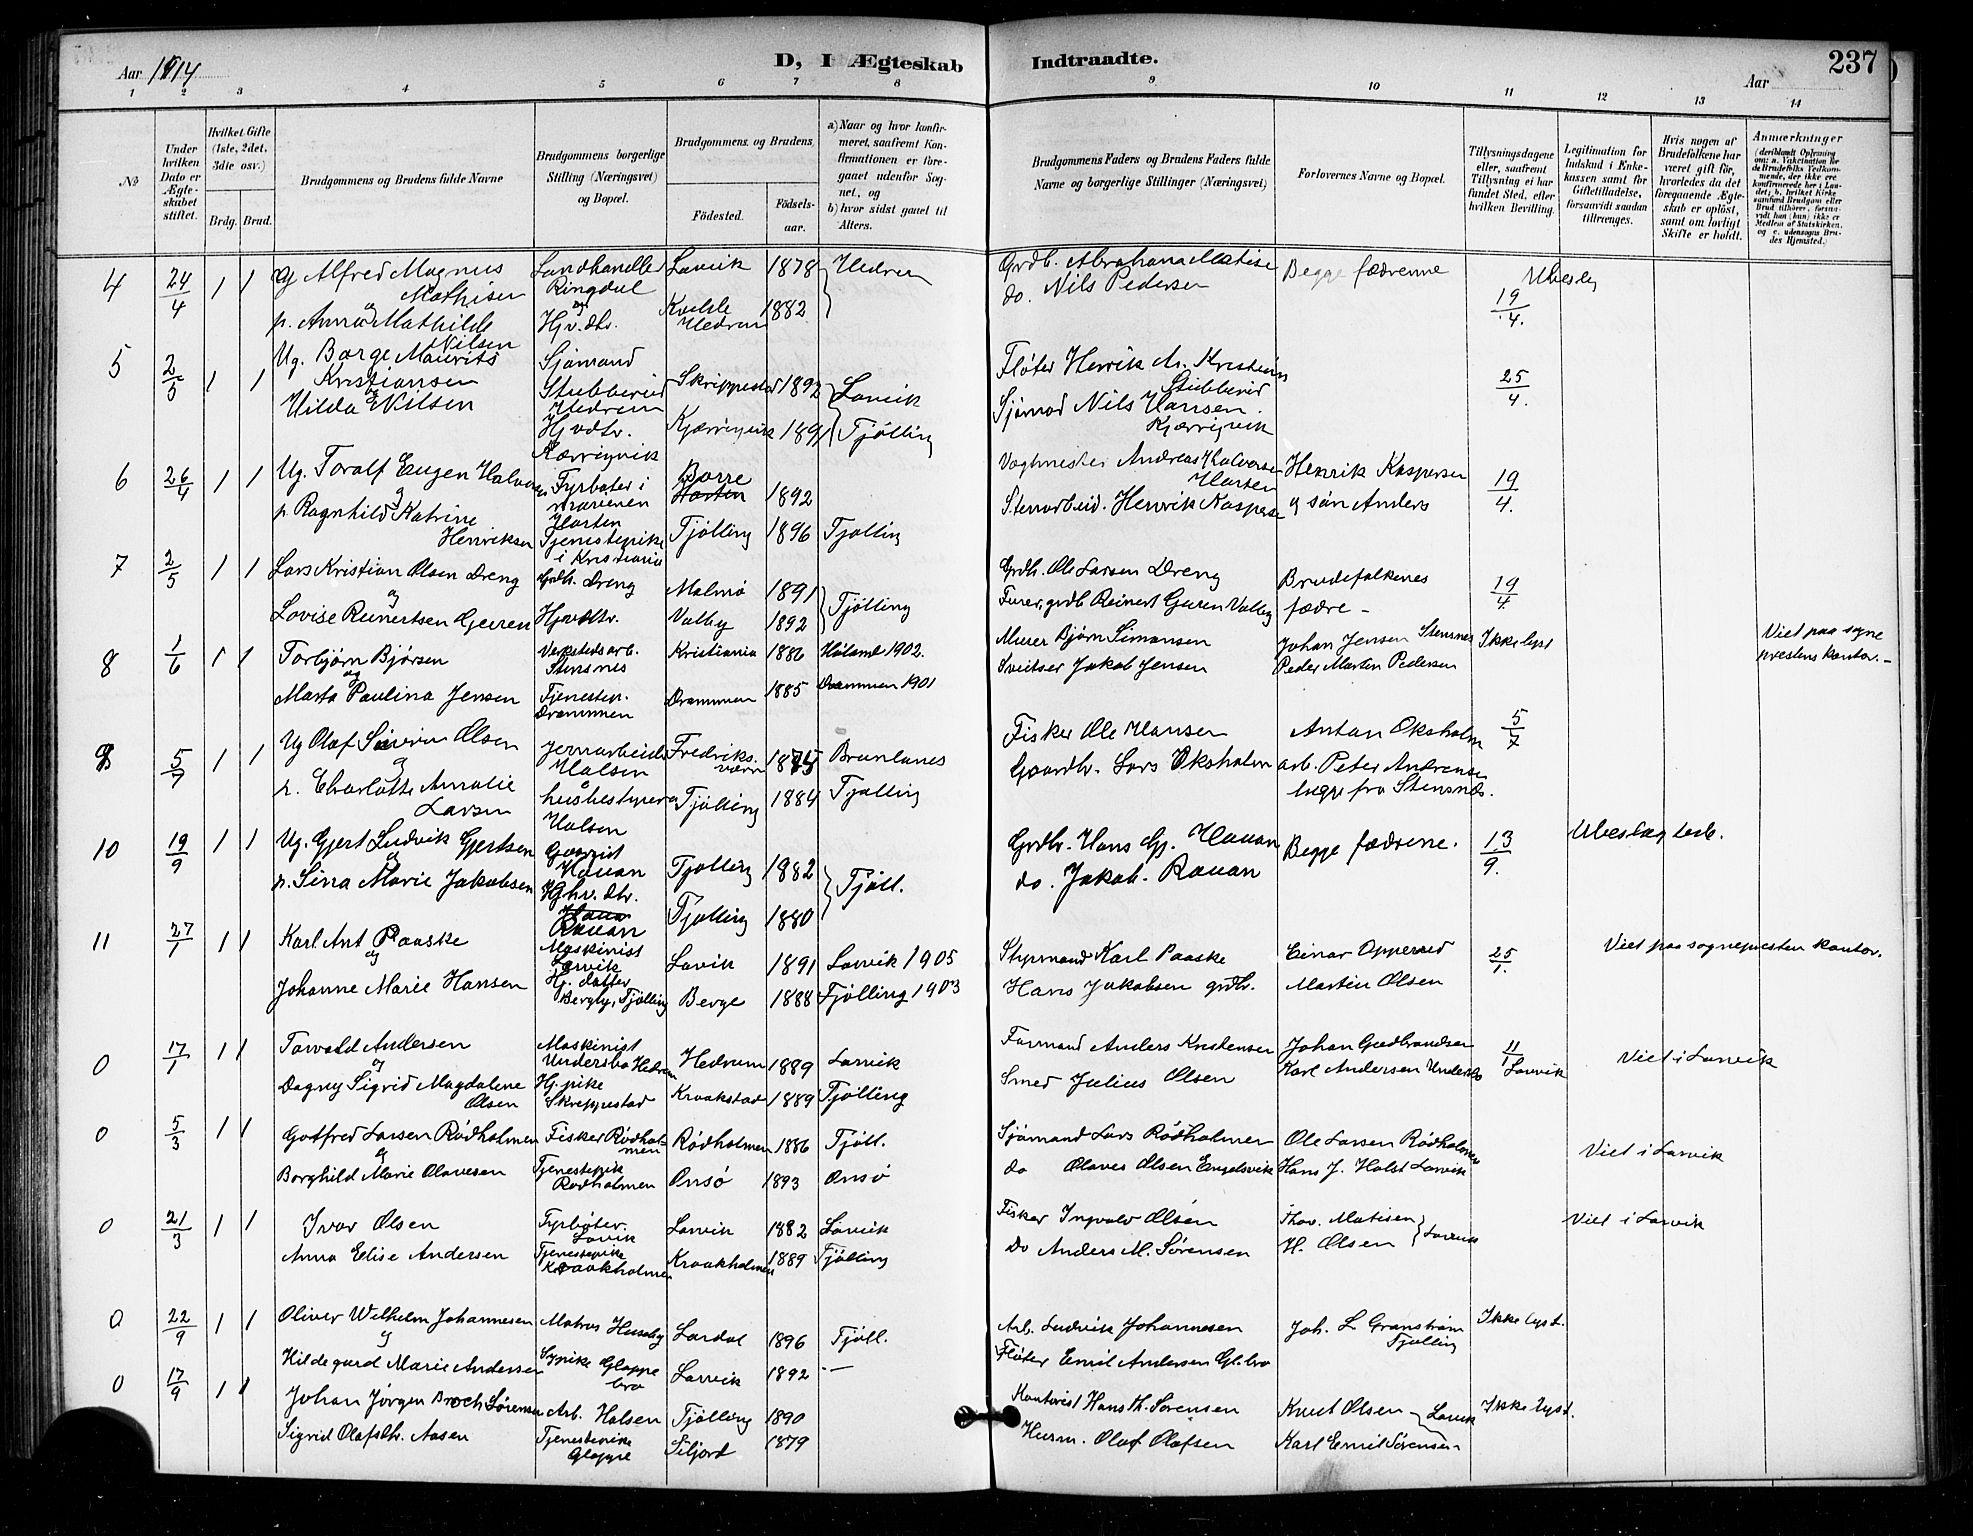 Aar 1914
D, I Ægteskab Indtraadte.
Aar
237
1 2 3 4 5 6 7 8 9 10 11 12 13 14
No
Under hvilken Dato er Ægteskabet stiftet.
Hvilket Gifte (1ste, 2det, 3die osv.)
Brdg. Brud.
Brudgommens og Brudens fulde Navne
Brudgommens borgerlige Stilling (Næringsvei) og Bopæl.
Brudgommens og Brudens
Födested.
Födselsaar.
a) Naar og hvor konfirmeret, saafremt Konfirmationen er foregaaet udenfor Sognet, og
b) hvor sidst gaaet til Alters.
Brudgommens Faders og Brudens Faders fulde Navne og borgerlige Stillinger (Næringsvei)
Forlovernes Navne og Bopæl.
Tillysningsdagene eller, saafremt Tillysning ei har fundet Sted, efter hvilken Bevilling.
Legitimation for Indskud i Enkekassen samt for Giftetilladelse, forsaavidt saadan tiltrænges.
Hvis nogen af Brudefolkene har været gift før, hvorledes da det foregaaende Ægteskab er opløst, samt om lovligt Skifte er holdt.
Anmærkninger
4 24/4 1 1 Ug Alfred Magnus Mathisen Landhandler Ringdal Larvik 1878 Hedrum Grdb. Abraham Matise Begge fædrenne 19/4.
og
p. Anna Mathilde Nilsen Hjv. dtr. Kvelde Hedrum 1882 do. Nils Pedersen
5 2/5 1 1 Ug. Borge Maurits Kristiansen Sjömand Stubberud Hedrum Skrippestad 1892 Larvik Fløter Henrik M. Kristians Stubberud 25/4.
og
Hilda E Nilsen Hjvdtr. Kærrigvik Kjærrigvik 1891 Tjölling Sjömad Nils Hansen. Kjærrigvik
6 26/4 1 1 Ug. Toralf Eugen Halvorsen Fyrbøter i marinen Horten Borre Horten 1892 Vagtmester Andreas Halvorsen Horten Henrik Kaspersen 19/4.
og
p. Ragnhild Katrine Henriksen Tjenestepike i Kristiania Tjölling 1896 Tjölling Stenarbeid. Henrik Kasperse og sön Anders
7 2/5 1 1 Lars Kristian Olsen Dreng Grdb. Dreng Malmø 1891 Tjölling Grdb. Ole Larsen Dreng Brudefolkenes 19/4
og
Lovise Reinertsen Guren Hjvdtr. Valby 1892 Reinert Guren Valby fædre -
8 1/6 1 1 Torbjørn Bjørsen Verkstedsarb. Stensnes Kristiania 1886 Høland 1902. Murer Bjørn Simonsen Johan Jensen Stensnes Ikke lyst Viet paa sogneprestens kontor.-
og
Marta Paulina Jensen Tjenestep. Drammen Drammen 1885 Drammen 1901 Sveitser Jakob Jensen Peder Martin Pedersen
9 5/7 1 1 Ug Olaf Severin Olsen Jernarbeider Halsen Fredriksværn 1875 Brunlanes Fisker Ole Hansen Anton Oksholm 5/7
og
p. Charlotte Amalie Larsen husbestyrer Halsen Tjölling 1884 Tjölling Gaardbr. Lars Oksholm arb. Peter Andrensen begge fra Stensnes.
10 19/9 1 1 Ug. Gjert Ludvik Gjertsen Hauan Tjölling 1882 Tjöll. Grdbr. Hans Gj. Hauan Begge fædrene. 13/9. Ubeslægted.
og
p. Sina Marie Jakobsen Gjhv. dtr. Rauan Tjölling 1880 do. Jakob. Rauan
11 27/1 1 1 Karl Ant Paaske Maskinist Larvik Larvik 1891 Larvik 1905 Styrmand Karl Paaske Einar Opperud 25/1. Viet paa sogneprestens kontor.
og
Johanne Marie Hansen Hj. datter Bergby, Tjölling Berge 1888 Tjölling 1903 Hans Jakobsen grdbr. Martin Olsen
0 17/1 1 1 Torvald Andersen Maskinist Undersbo Hedrum Hedrum 1889 Larvik Formand Anders Kristensen Johan Gudbrandsen 11/1 Larvik Viet i Larvik
og
Dagny Sigrid Magdalene Olsen Hj. pike Skreppestad Kraakstad 1889 Tjölling Smed Julius Olsen Karl Andersen Undersbo
0 5/3 1 1 Gotfred Larsen Rødholmen Fisker Rødholmen Rødholmen 1886 Tjöll. Sjömand Lars Rødholmen Ole Larsen Rødholmen Viet i Larvik
og
Borghild Marie Olavesen Tjenestepik Rødholmen Onsö 1893 Onsö do Olaves Olsen Engelsvik Hans J. Holst Larvik
0 21/3 1 1 Ivar Olsen Fyrbøter. Larvik Larvik 1882 Larvik Fisker Ingvald Olsen Thov. Matisen Larvik Viet i Larvik
Anna Elise Andersen Tjenestepike Kraakholmen Kraakholmen 1889 Tjölling Do Anders M. Sørensen H. Olsen
0 22/9 1 1 Oliver Wilhelm Johannesen Matros Huseby Lardal 1896 Tjöll. Arb. Ludvik Johannesen Joh. L. Granstrøm Tjølling Ikke lyst.
og
Hildegard Marie Andersen Sypike Gloppe bro Larvik 1892 — Fløter Emil Andersen Gl. bro
0 17/9 1 1 Johan Jörgen Broch Sørensen Arb. Halsen Tjölling 1890 Hans Th. Sørensen Knut Olsen Larvik Ikke lyst.
Sigrid Olafsdtr. Aasen Tjenestepike Gloppe Siljord 1879 Husm. Olaf Olafsen Karl Emil Sørensen